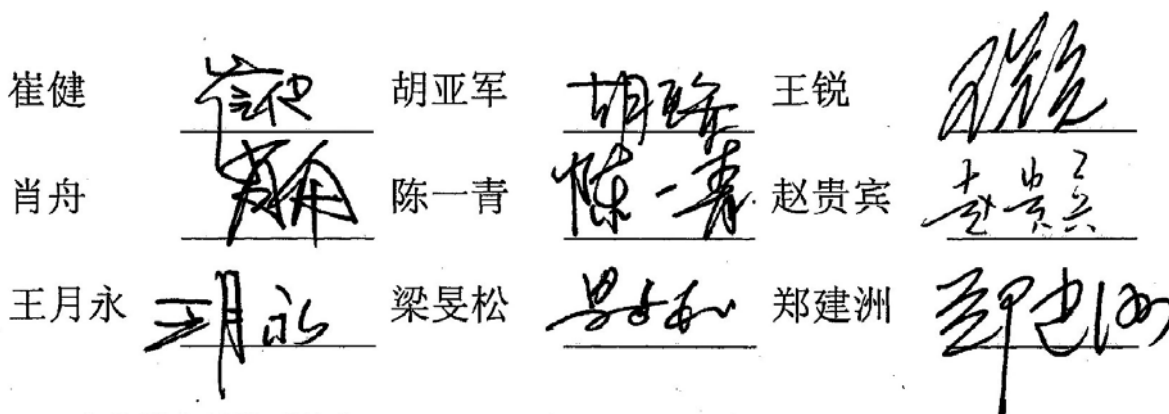 崔健 崔健 胡亚军 胡亚军 王锐 王锐
肖舟 肖舟 陈一青 陈一青 赵贵宾 赵贵宾
王月永 王月永 梁旻松 郑建洲 郑建洲